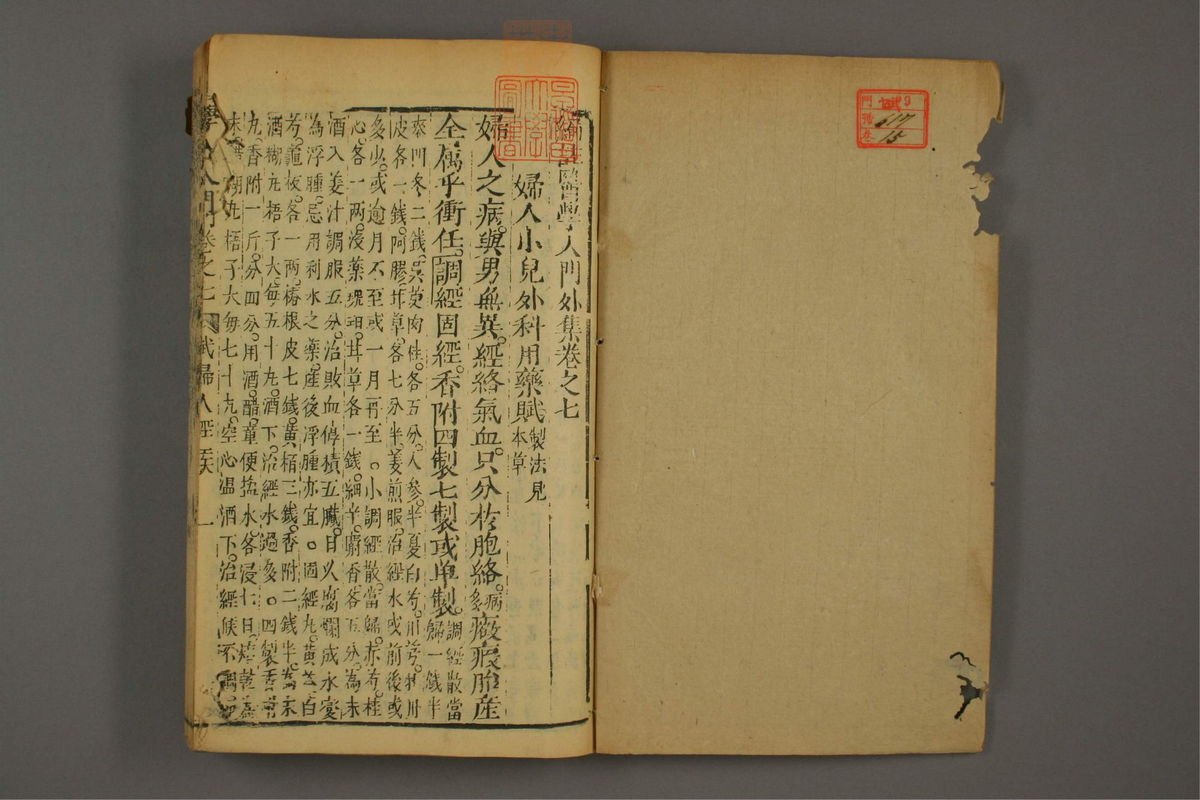 編註醫學入門外集卷之七
婦人小兒外科用藥賦 製法見本草
婦人之病。與男無異。經絡氣血。只分於胞絡。病多癥瘕胎產
全屬乎衝任。調經固經。香附四製七製或单製。調經散當歸一錢半
麥門冬二錢。吳茱肉桂。各五分。人參。半夏白芍。川芎。牡丹
皮各一錢。阿膠甘草。各七分半。姜煎服。治經水或前後或
多少。或逾月不至或一月再至。○小調經散。當歸。赤芍。桂
心。各一両。没藥琥珀。甘草各一錢。細辛。麝香各五分。為末
酒入姜汁調服五分。治敗血停積五臟。日久腐爛成水變
為浮腫。忌用利水之藥。產後浮腫亦宜。○固經丸。黃芩白
芍。龜板。各一両。椿根皮七錢。黃栢三錢。香附二錢半。為末
酒糊丸梧子大每五十丸。酒下。治經水過多。○四製香附
丸。香附一斤。分四分。用酒。醋。童便塩水。各浸七日。
末。醋糊丸梧子大每七十丸。空心温酒下。治經候不調
學入門卷之七 婦人經 一
門 9
號 617
卷 15